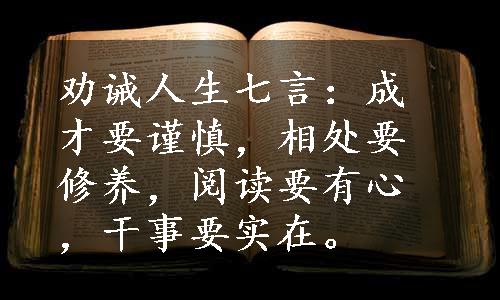 劝诫人生七言：成
才要谨慎，相处要
修养，阅读要有心
，干事要实在。